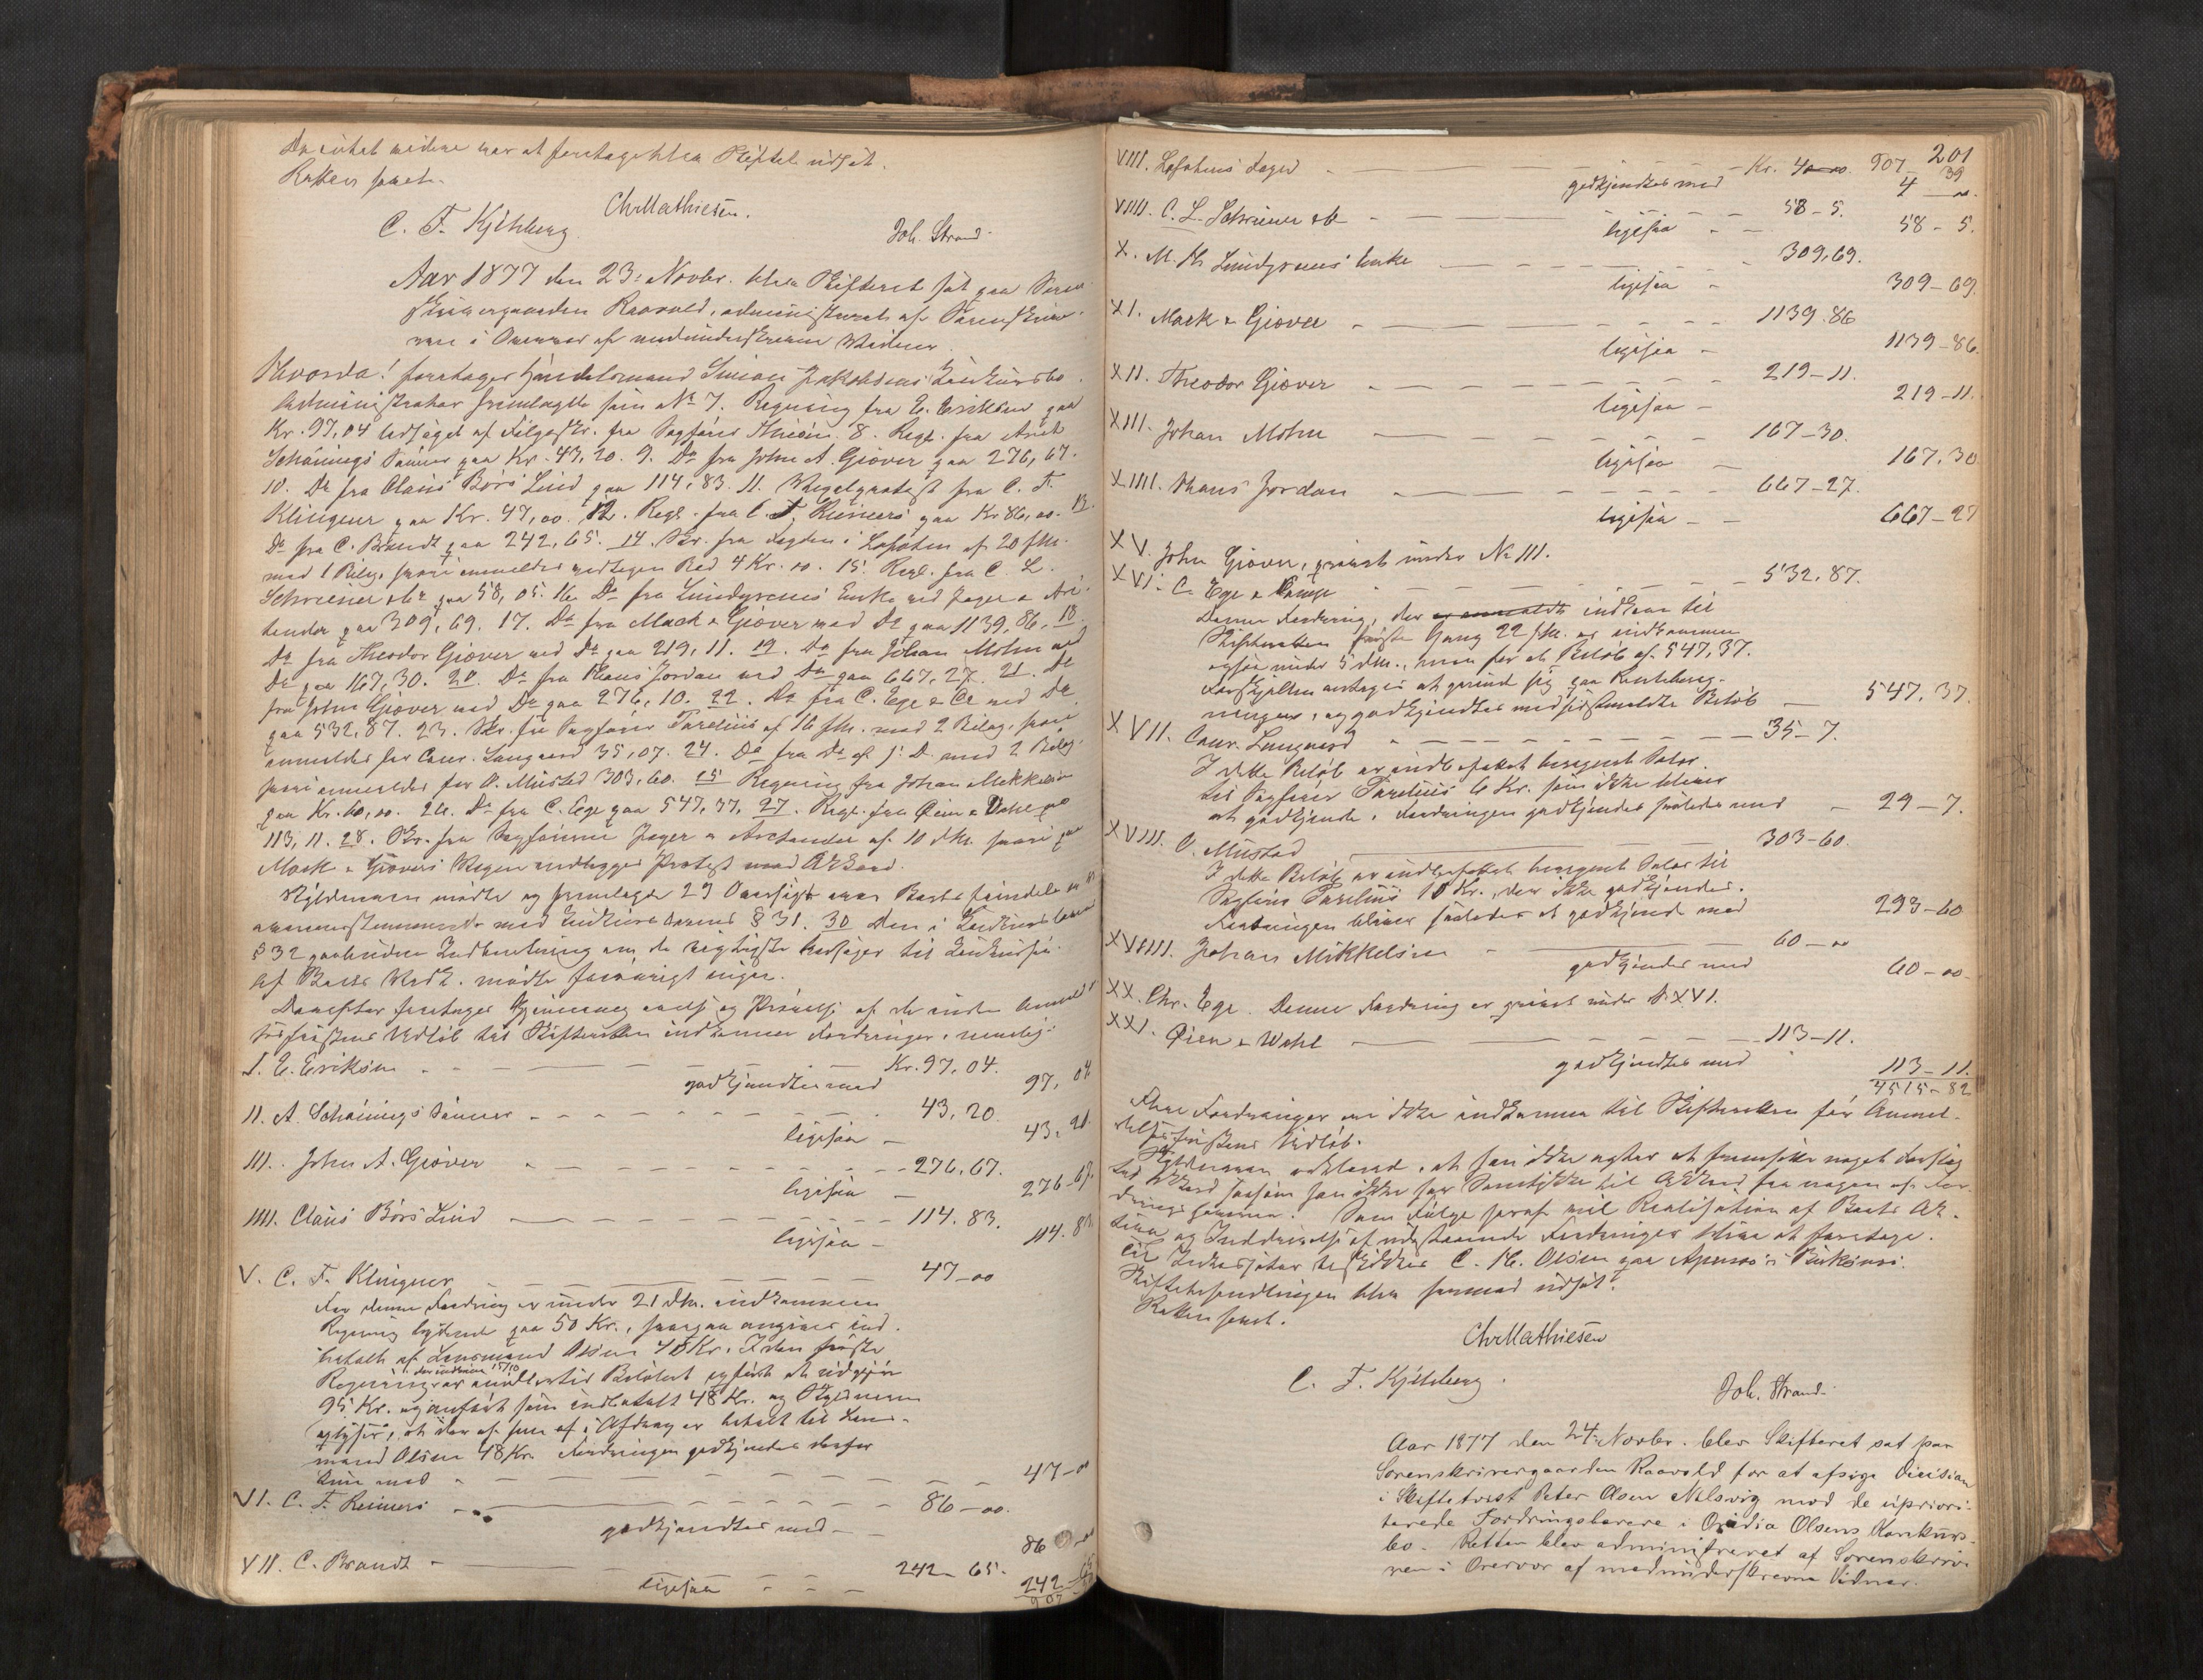 Da intet videre var at foretage blev Skiftet udsat.
Retten hævet.
Chr Mathiesen.
C. F. Kjelsberg. Joh. Strand.
Aar 1877 den 23de Novbr. blev Skifteret sat paa Soren-
skrivergaarden Raavold, administreret af Sorenskrive-
ren i Overvær af medunderskrevne Vidner.
Hvorda! foretages Handelsmand Simon Jakobsens Konkursbo.
Administrator fremlagde som No 7. Regning fra E. Eriksen paa
Kr. 97,04 ledsaget af Følgeskr. fra Sagfører 8. Regn. fra Aret
Schönings Sønner paa Kr. 43,20. 9. Do fra John A. Giæver paa 276,67.
10. Do fra Claus Börs Lind paa 114,83. 11. fra C. F.
Klingner paa Kr. 47,00. 12. Regn. fra C. F. Reiners paa Kr 86,00. 13.
Do fra C. Brandt paa 242,65. 14. Skr. fra Fogden i Lofoten af 20 f.M.
med 1 Bilag, hvori anmeldes 4 Kr. 00. 15. Regn. fra C. L.
Schreiner & Co paa 58,05. 16. Do fra Lundgreens Enke ved Jager & Arc-
tander paa 309,69. 17. Do fra Mack & Giæver med Do paa 1139,86. 18.
Do fra Theodor Giæver ved Do paa 219,11. 19. Do fra Johan Mohn ved
Do paa 167,30. 20. Do fra Hans Jordan ved Do paa 667,27. 21. Do
fra John Giæver ved Do paa 276,10. 22. Do fra C. Ege & Co ved Do
paa 532,87. 23. Skr. fra Sagfører Parelius af 16 f.M. med 2 Bilag, hvori
anmeldes for Conr. Langaard 35,07. 24. Do fra Do af s. D. med 2 Bilag
hvori anmeldes for O. Mustad 303,60. 25 Regning fra Johan Mikkelsen
paa Kr. 60,00. 26. Do fra C. Ege paa 547,37. 27. Regn. fra Øien & Wahl paa
113,11. 28. Skr. fra Sagførerne Jager & Arctander af 10 d.M. hvori paa
Mack & Giævers Vegne nedlægges Protest mod Akkord.
Skyldneren mødte og fremlagde 29 Oversigt over Boets Eiendele
overensstemmende med Konkurslovens § 31. 30 den i Konkursloven
§ 32 paabudne Indberetning om de vigtigste Aarsager til Konkursen.
Af Boets Vedk. mødte forøvrigt ingen.
Derefter foretoges Gjennemgaaelse og Prøvelse af de inden Anmeld-
elsesfristens Udløb til Skifteretten indkomne Fordringer, nemlig:
I. E. Eriksen - - - Kr. 97,04.
godkjendtes med 97,04
II. A. Schönings Sønner - - - 43,20.
ligesaa - 43,20
III. John A. Giæver - - - 276,67.
ligesaa - 276-67.
IIII. Claus Börs Lind - - - 114.83.
ligesaa - 114.83
V. C. F. Klingner - - - 47-00
For denne Fordring er under 21 d.M. indkommen
Regning lydende paa 50 Kr., hvorpaa angives ind-
betalt af Lensmand Olsen 48 Kr. I den første
Regning, der indkom 15/10 er imidlertid Beløbet opført at udgjøre
95 Kr. og anført som indbetalt 48 Kr. og Skyldneren
oplyser, at der af ham i Afdrag er betalt til Lens-
mand Olsen 48 Kr. Fordringen godkjendes derfor
kun med - - - 47-00
VI. C. F. Reiners - - - 86-00.
godkjendtes med - 86-00
VII. C. Brandt - - - 242-65.
ligesaa - - - 242-65
907
201
VIII. Lofotens Foged - - - Kr. 4-00. 907-39
godkjendtes med 4-00.
VIIII. C. L. Schreiner & Co - - - 58-5.
ligesaa - 58-5.
X. M. H. Lundgreens Enke - - - 309,69.
ligesaa - 309-69.
XI. Mack & Giæver - - - 1139.86
ligesaa - 1139-86.
XII. Theodor Giæver - - - 219-11.
ligesaa - 219-11.
XIII. Johan Mohn - - - 167-30.
ligesaa - 167,30
XIIII. Hans Jordan - - - 667-27.
ligesaa - 667-27
XV. John Giæver, prøvet under No III.
XVI. C. Ege & Comp - - - 532,87.
Denne Fordring, der er anmeldt indkom til
Skifteretten første Gang 22 f.M. er indkommen
ogsaa under 5 d.M., men for et Beløb af 547,37.
Forskjellen antages at grunde sig paa Renteberegn-
ningen, og godkjendtes med sidstmeldte Beløb - 547,37.
XVII. Conr. Langaard - - - 35-7.
I dette Beløb er indbefattet beregnet Salær
til Sagfører Parelius 6 Kr. som ikke bliver
at godkjende. Fordringen godkjendes saaledes med - 29-7.
XVIII. O. Mustad - - - 303-60.
I dette Beløb er indbefattet beregnet Salær til
Sagfører Parelius 10 Kr., der ikke godkjendes.
Fordringen bliver saaledes at godkjende med 293-60
XVIIII. Johan Mikkelsen - - - 60-00
godkjendes med 60-00
XX. Chr. Ege. Denne Fordring er prøvet under No XVI.
XXI. Øien & Wahl - - - 113-11.
godkjendtes med 113-11.
4515-82
Flere Fordringer er ikke indkomne til Skifteretten før Anmel-
delsesfristens Udløb.
Skyldneren erklærede, at han ikke agter at fremsætte noget Forslag
til Akkord saasom han ikke har Samtykke til Akkord fra nogen af For-
dringshaverne. Som Følge heraf vil Realisation af Boets Ak-
tiva og Inddrivelse af udestaaende Fordringer blive at foretage.
Til Inkassator beskikkes C. H. Olsen paa
Skiftebehandlingen blev hermed udsat.
Retten hævet.
Chr Mathiesen
C. F. Kjelsberg. Joh. Strand.
Aar 1877 den 24de Novbr. blev Skifteret sat paa
Sorenskrivergaarden Raavold for at afsige Decision
i Skiftetvist Peter Olsen mod de upriori-
terede Fordringshavere i Olsens Konkurs-
bo. Retten blev administreret af Sorenskrive-
ren i Overvær af medunderskrevne Vidner.